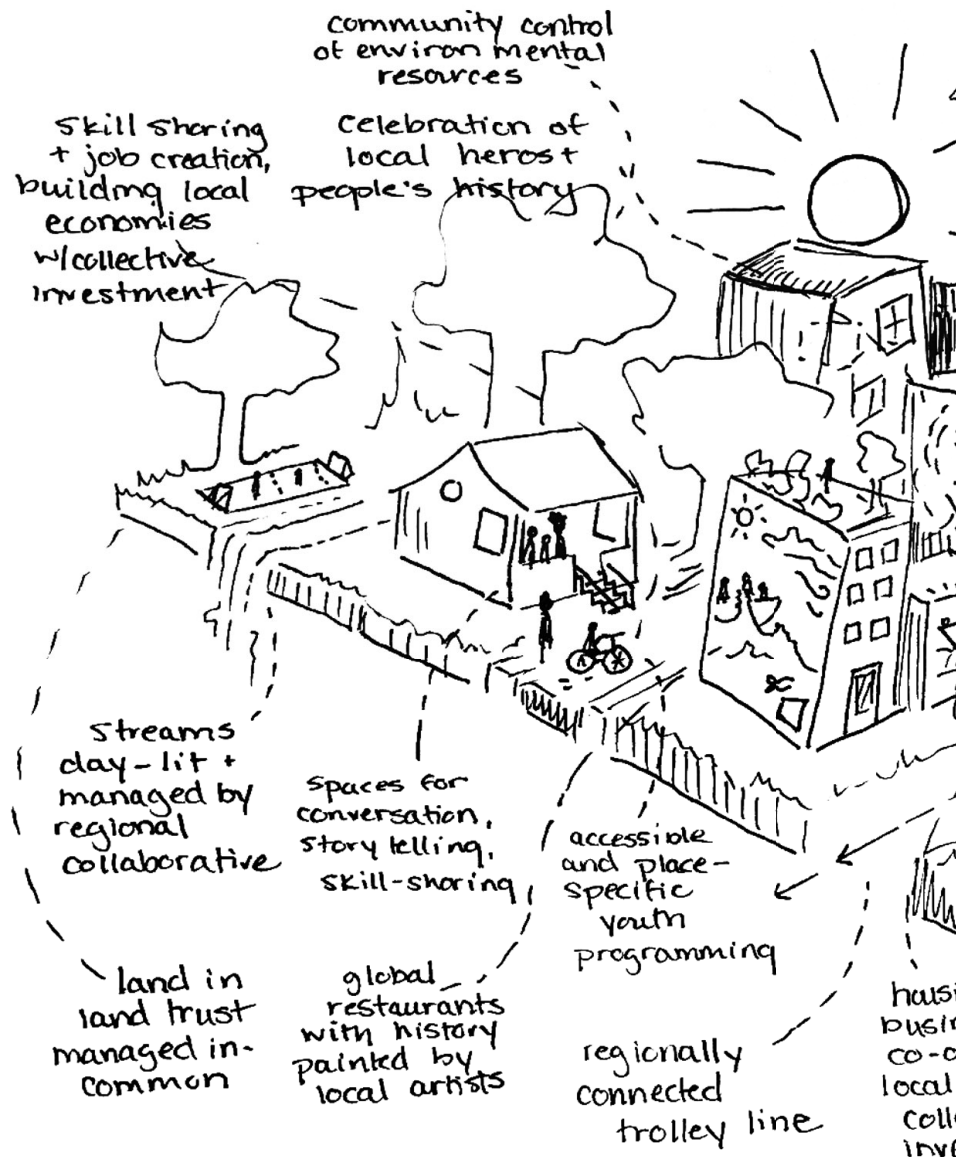 community control
of environmental
resources
skill sharing
+ job creation,
building local
economies
w/collective
investment
celebration of
local heros +
people's history
streams
day-lit +
managed by
regional
collaborative
spaces for
conversation,
story telling,
skill-sharing
accessible
and place-
specific
youth
programming
land in
land trust
managed in-
common
global
restaurants
with history
painted by
local artists
regionally
connected
trolley line
local